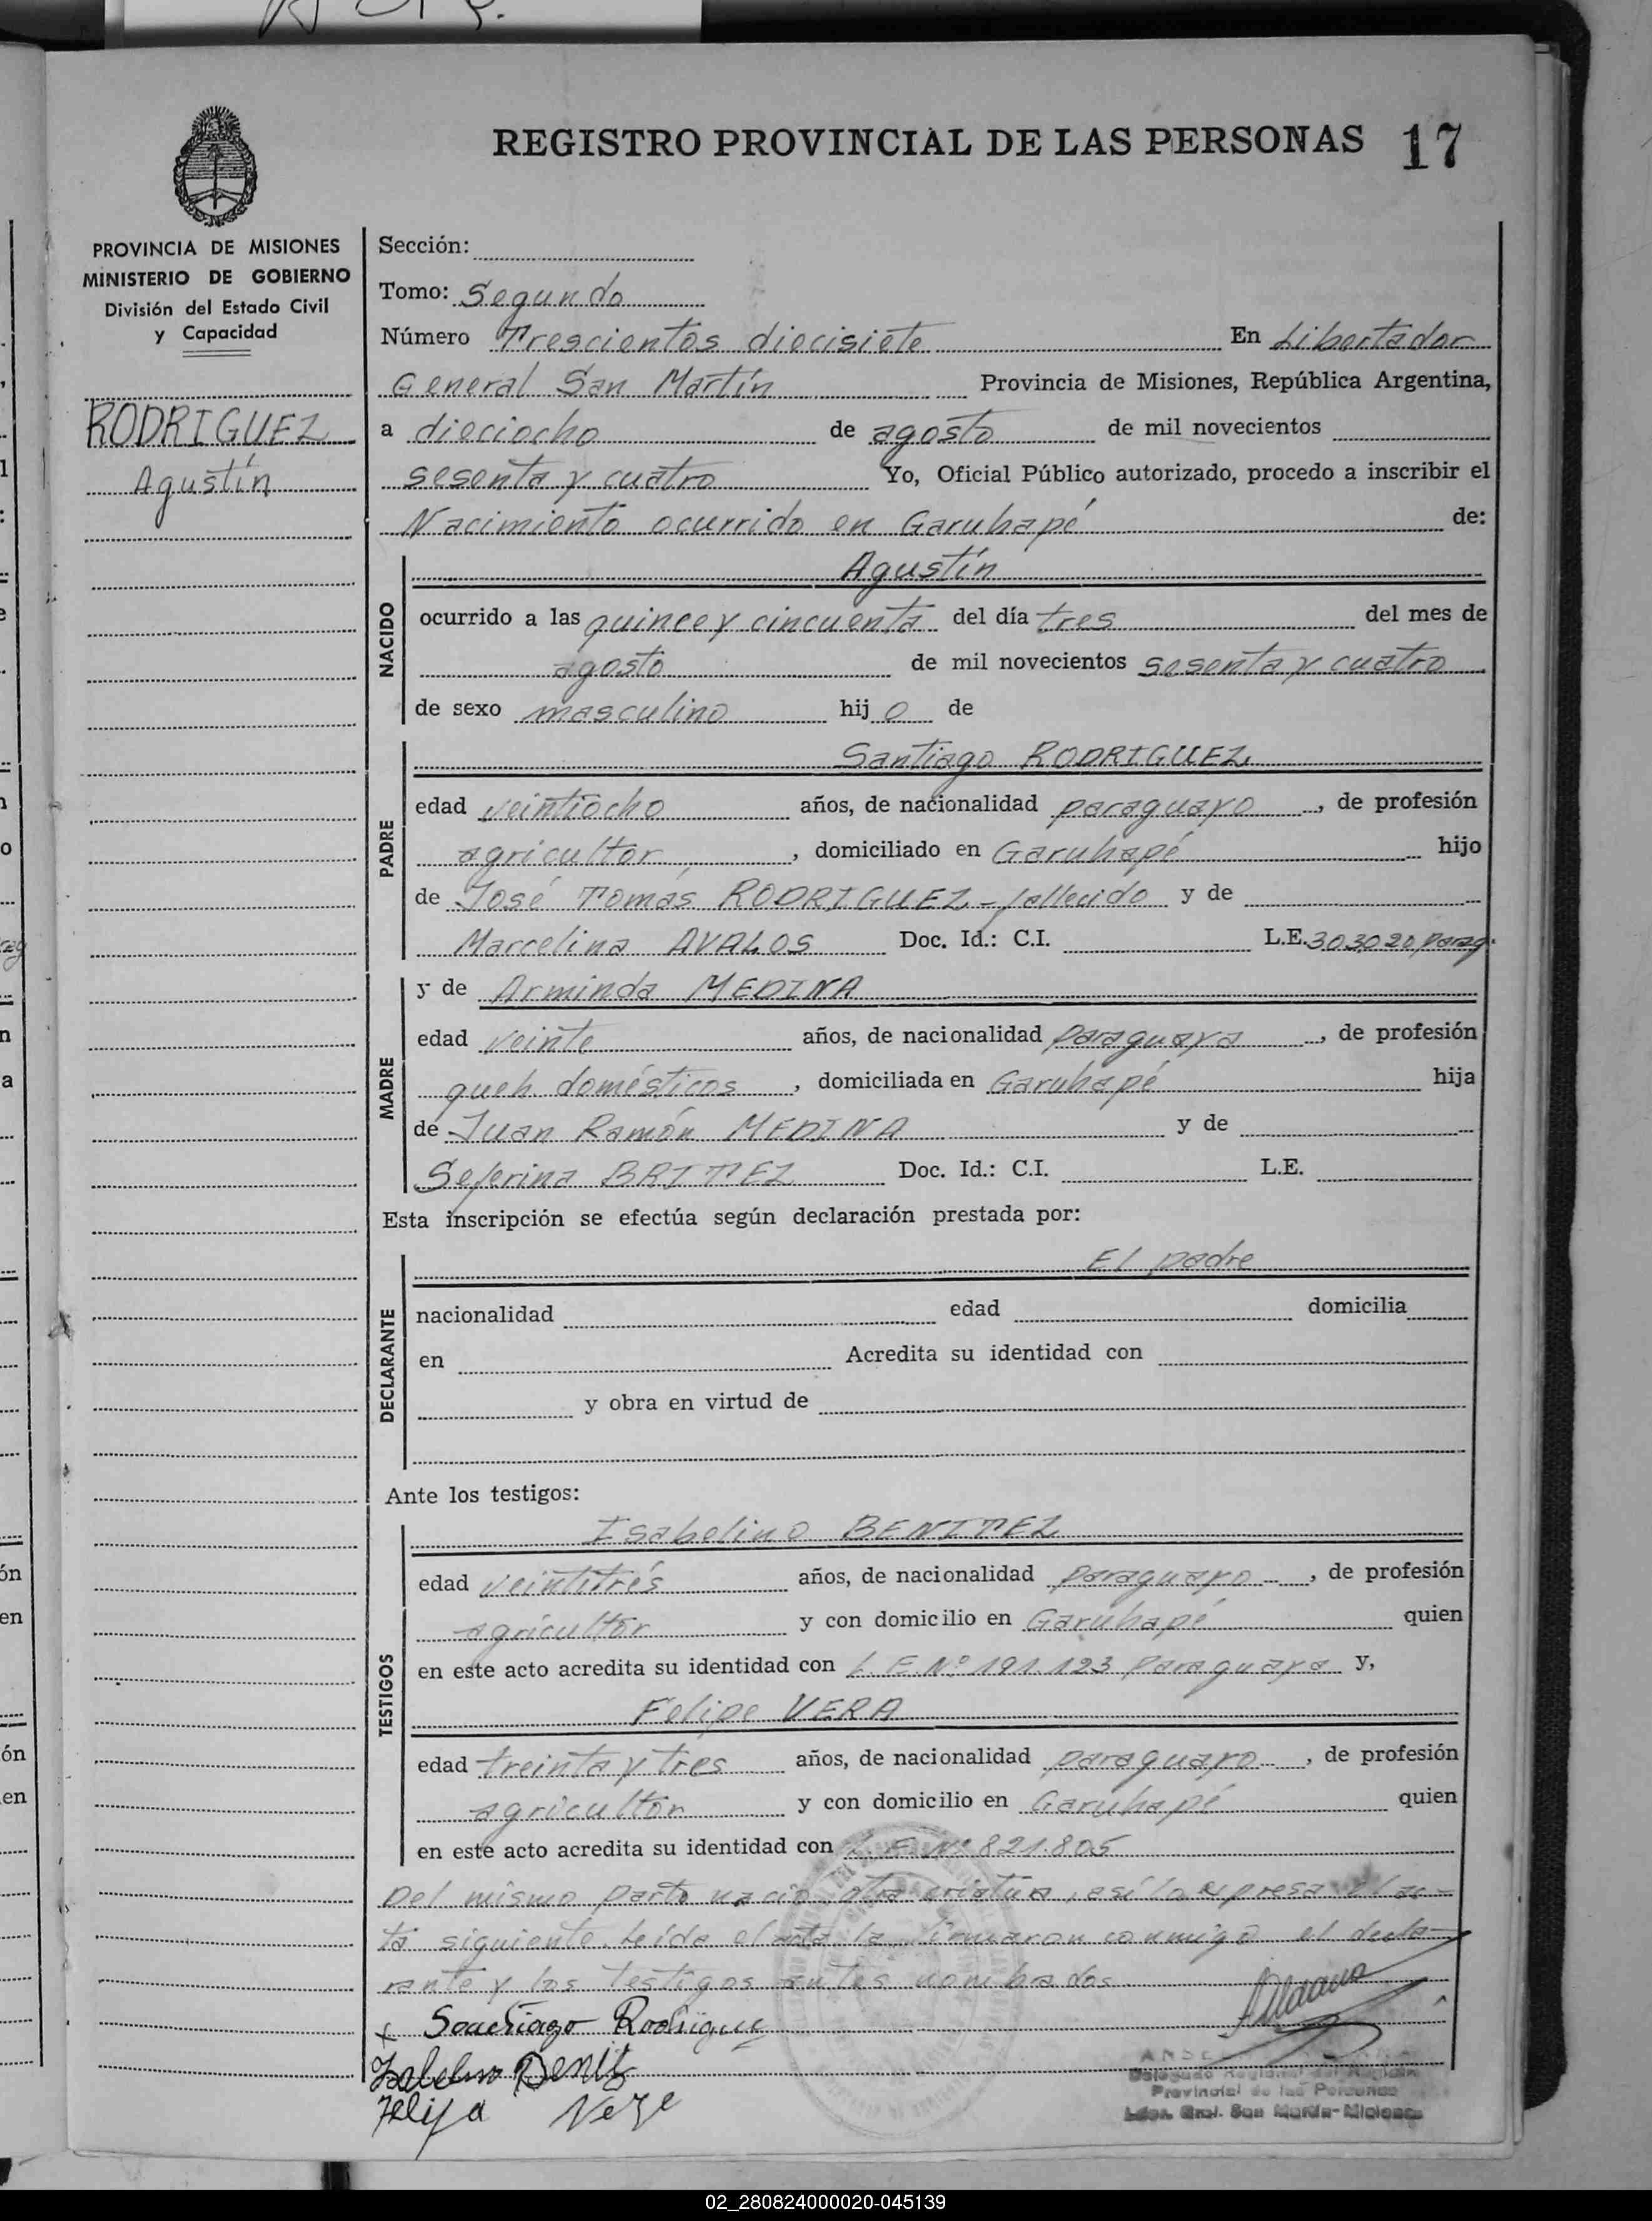 REGISTRO PROVINCIAL DE LAS PERSONAS 17
PROVINCIA DE MISIONES
MINISTERIO DE GOBIERNO
División del Estado Civil
y Capacidad
RODRIGUEZ
Agustín
Sección:
Tomo: Segundo
Número Trescientos diecisiete En Libertador
General San Martín Provincia de Misiones, República Argentina,
a dieciocho de agosto de mil novecientos
sesenta y cuatro Yo, Oficial Público autorizado, procedo a inscribir el
Nacimiento ocurrido en Garuhapé de:
NACIDO
Agustín
ocurrido a las quince y cincuenta del día tres del mes de
agosto de mil novecientos sesenta y cuatro
de sexo masculino hij o de
PADRE
Santiago RODRIGUEZ
edad veintiocho años, de nacionalidad paraguayo, de profesión
agricultor, domiciliado en Garuhapé hijo
de José Tomás RODRIGUEZ - fallecido y de
Marcelina AVALOS Doc. Id.: C.I. L.E. 303020 Parag.
MADRE
y de Arminda MEDINA
edad veinte años, de nacionalidad paraguaya, de profesión
queh. domésticos, domiciliada en Garuhapé hija
de Juan Ramón MEDINA y de
Seferina BRITEZ Doc. Id.: C.I. L.E.
Esta inscripción se efectúa según declaración prestada por:
DECLARANTE
El padre
nacionalidad edad domicilia
en Acredita su identidad con
y obra en virtud de
Ante los testigos:
TESTIGOS
Isabelino BENITEZ
edad veintitrés años, de nacionalidad paraguayo, de profesión
agricultor y con domicilio en Garuhapé quien
en este acto acredita su identidad con L.E. Nº 191.123 Paraguaya y,
Felipe VERA
edad treinta y tres años, de nacionalidad paraguayo, de profesión
agricultor y con domicilio en Garuhapé quien
en este acto acredita su identidad con L.E. Nº 821.805
Del mismo parto nació otra criatura, así lo expresa el ac-
ta siguiente. Leída el acta la firmaron conmigo el decla-
rante y los testigos antes nombrados.
Santiago Rodriguez
Felipa Vera
Delegado Regional del Registro
Provincial de las Personas
Ldor. Gral. San Martín-Misiones
02_280824000020-045139